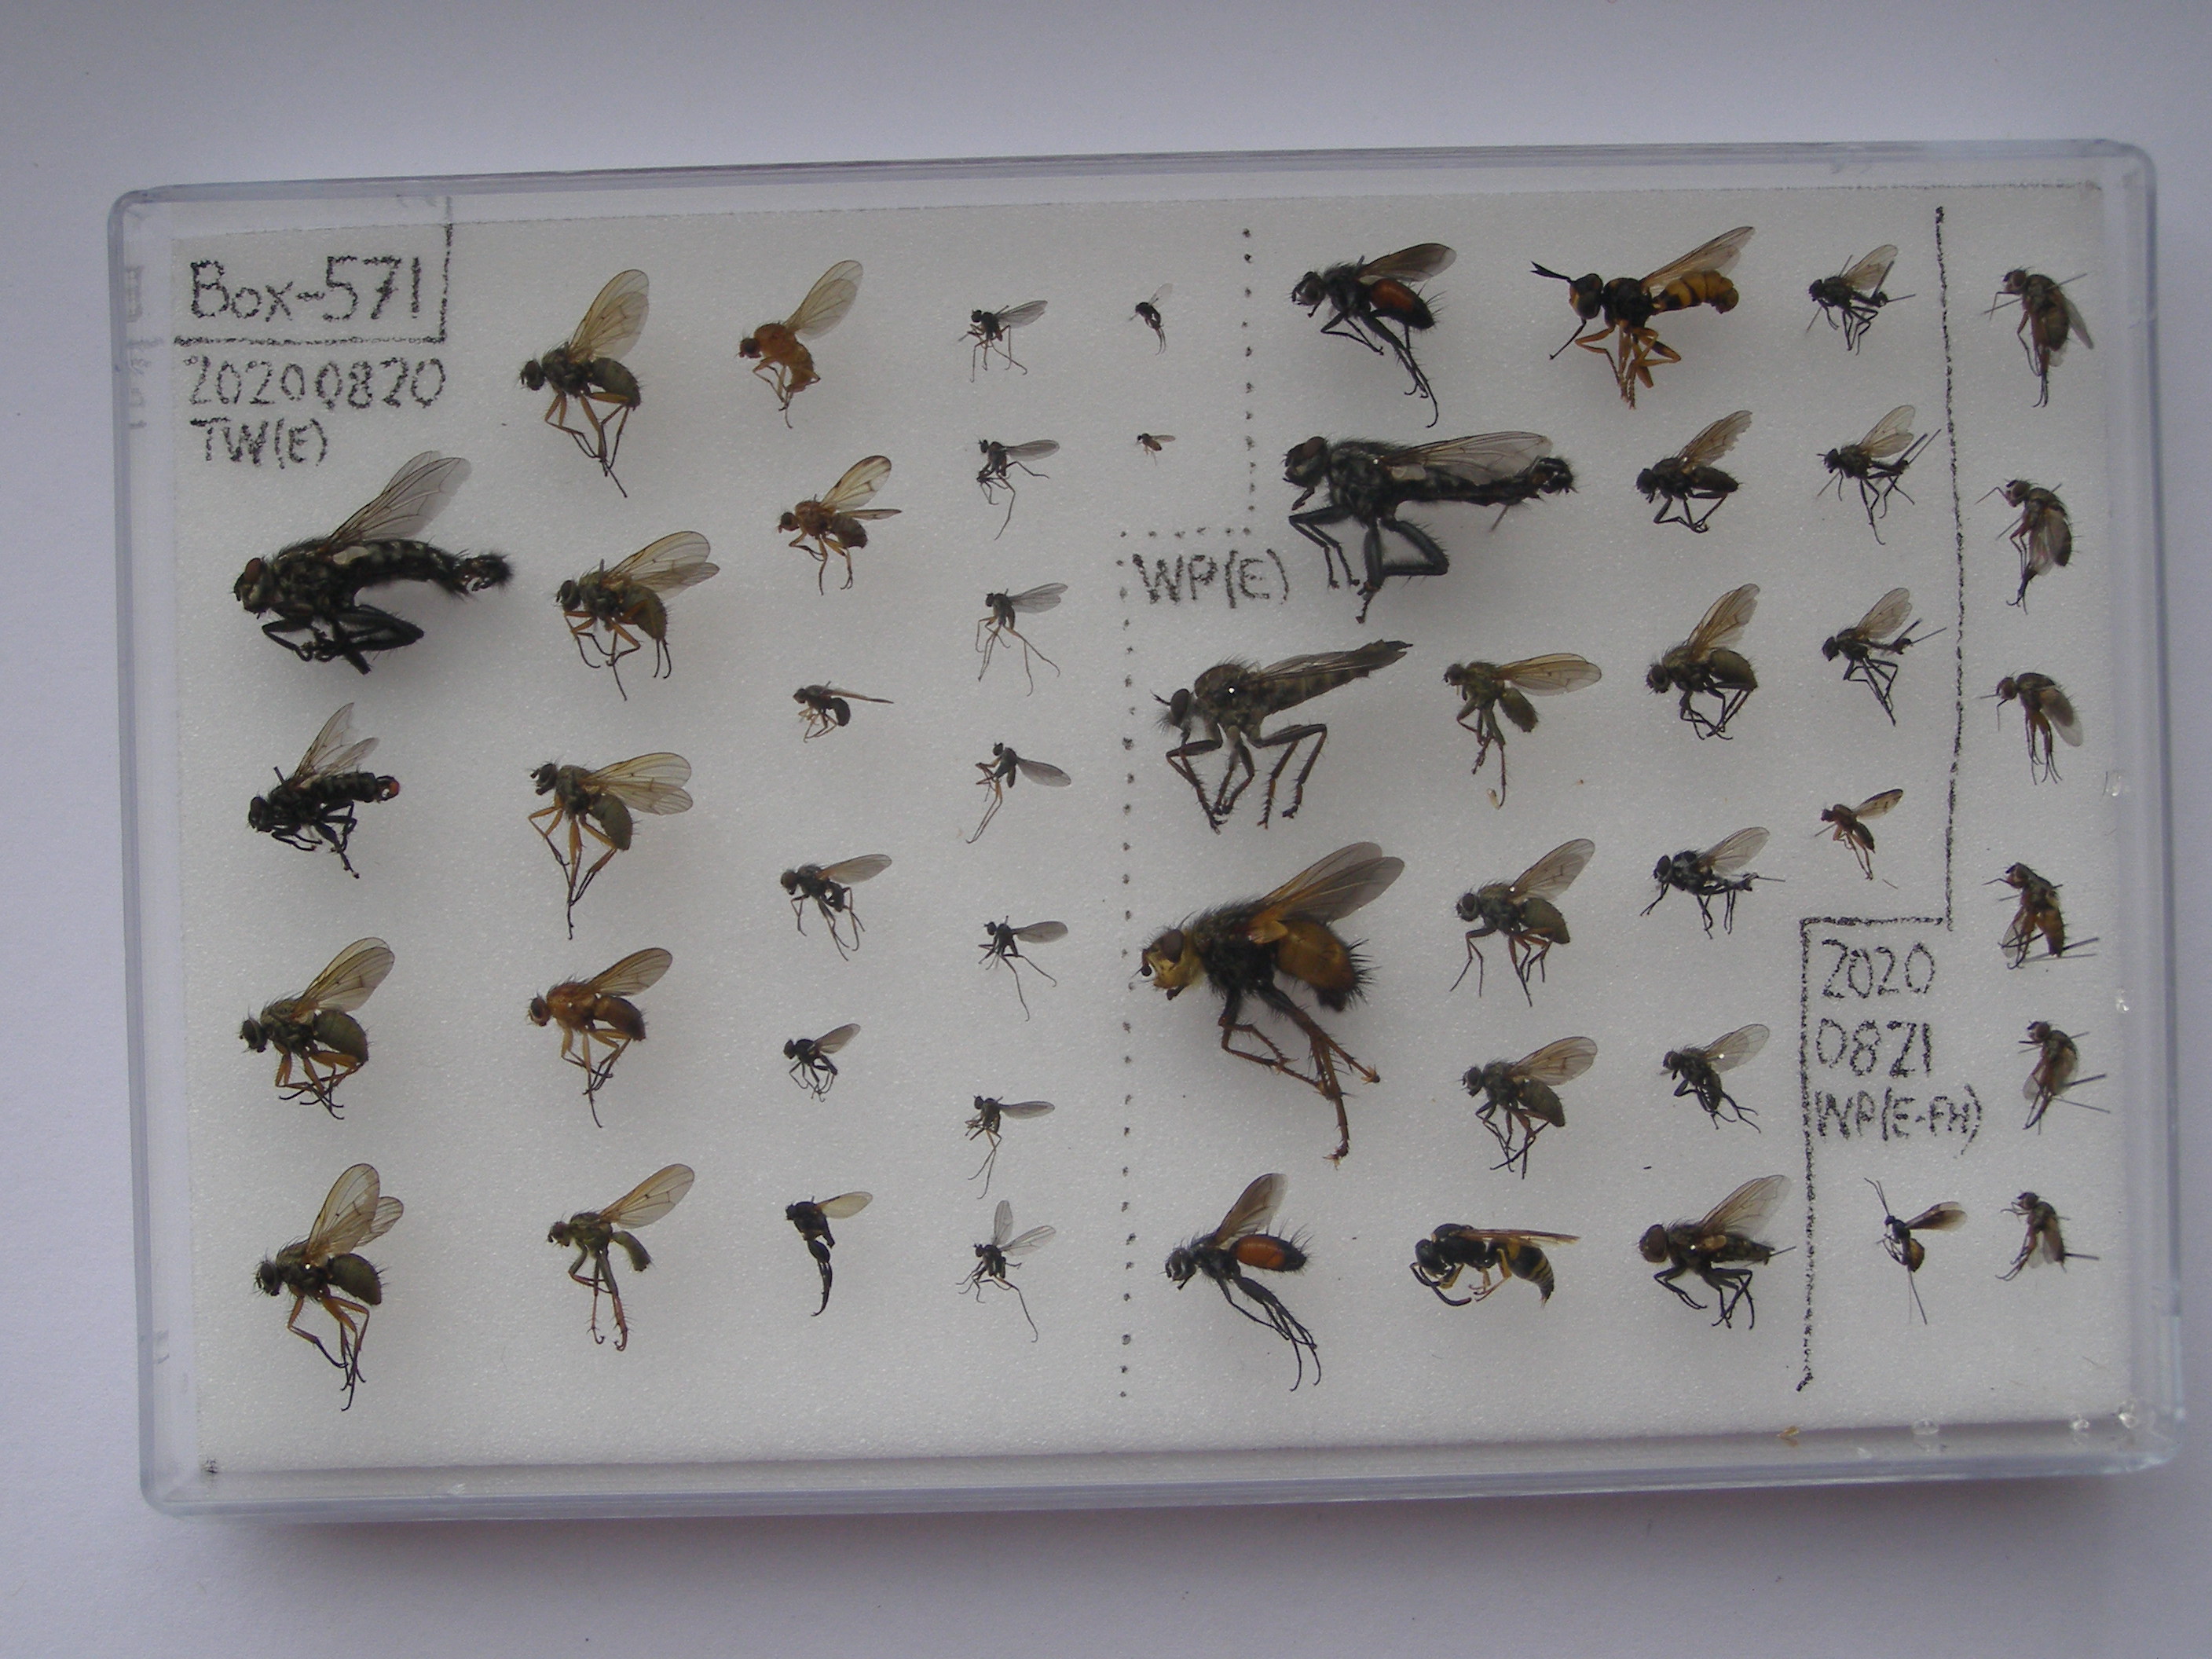 Box-571
20200820
TW(E)
WP(E)
2020
0821
WP(E-FH)